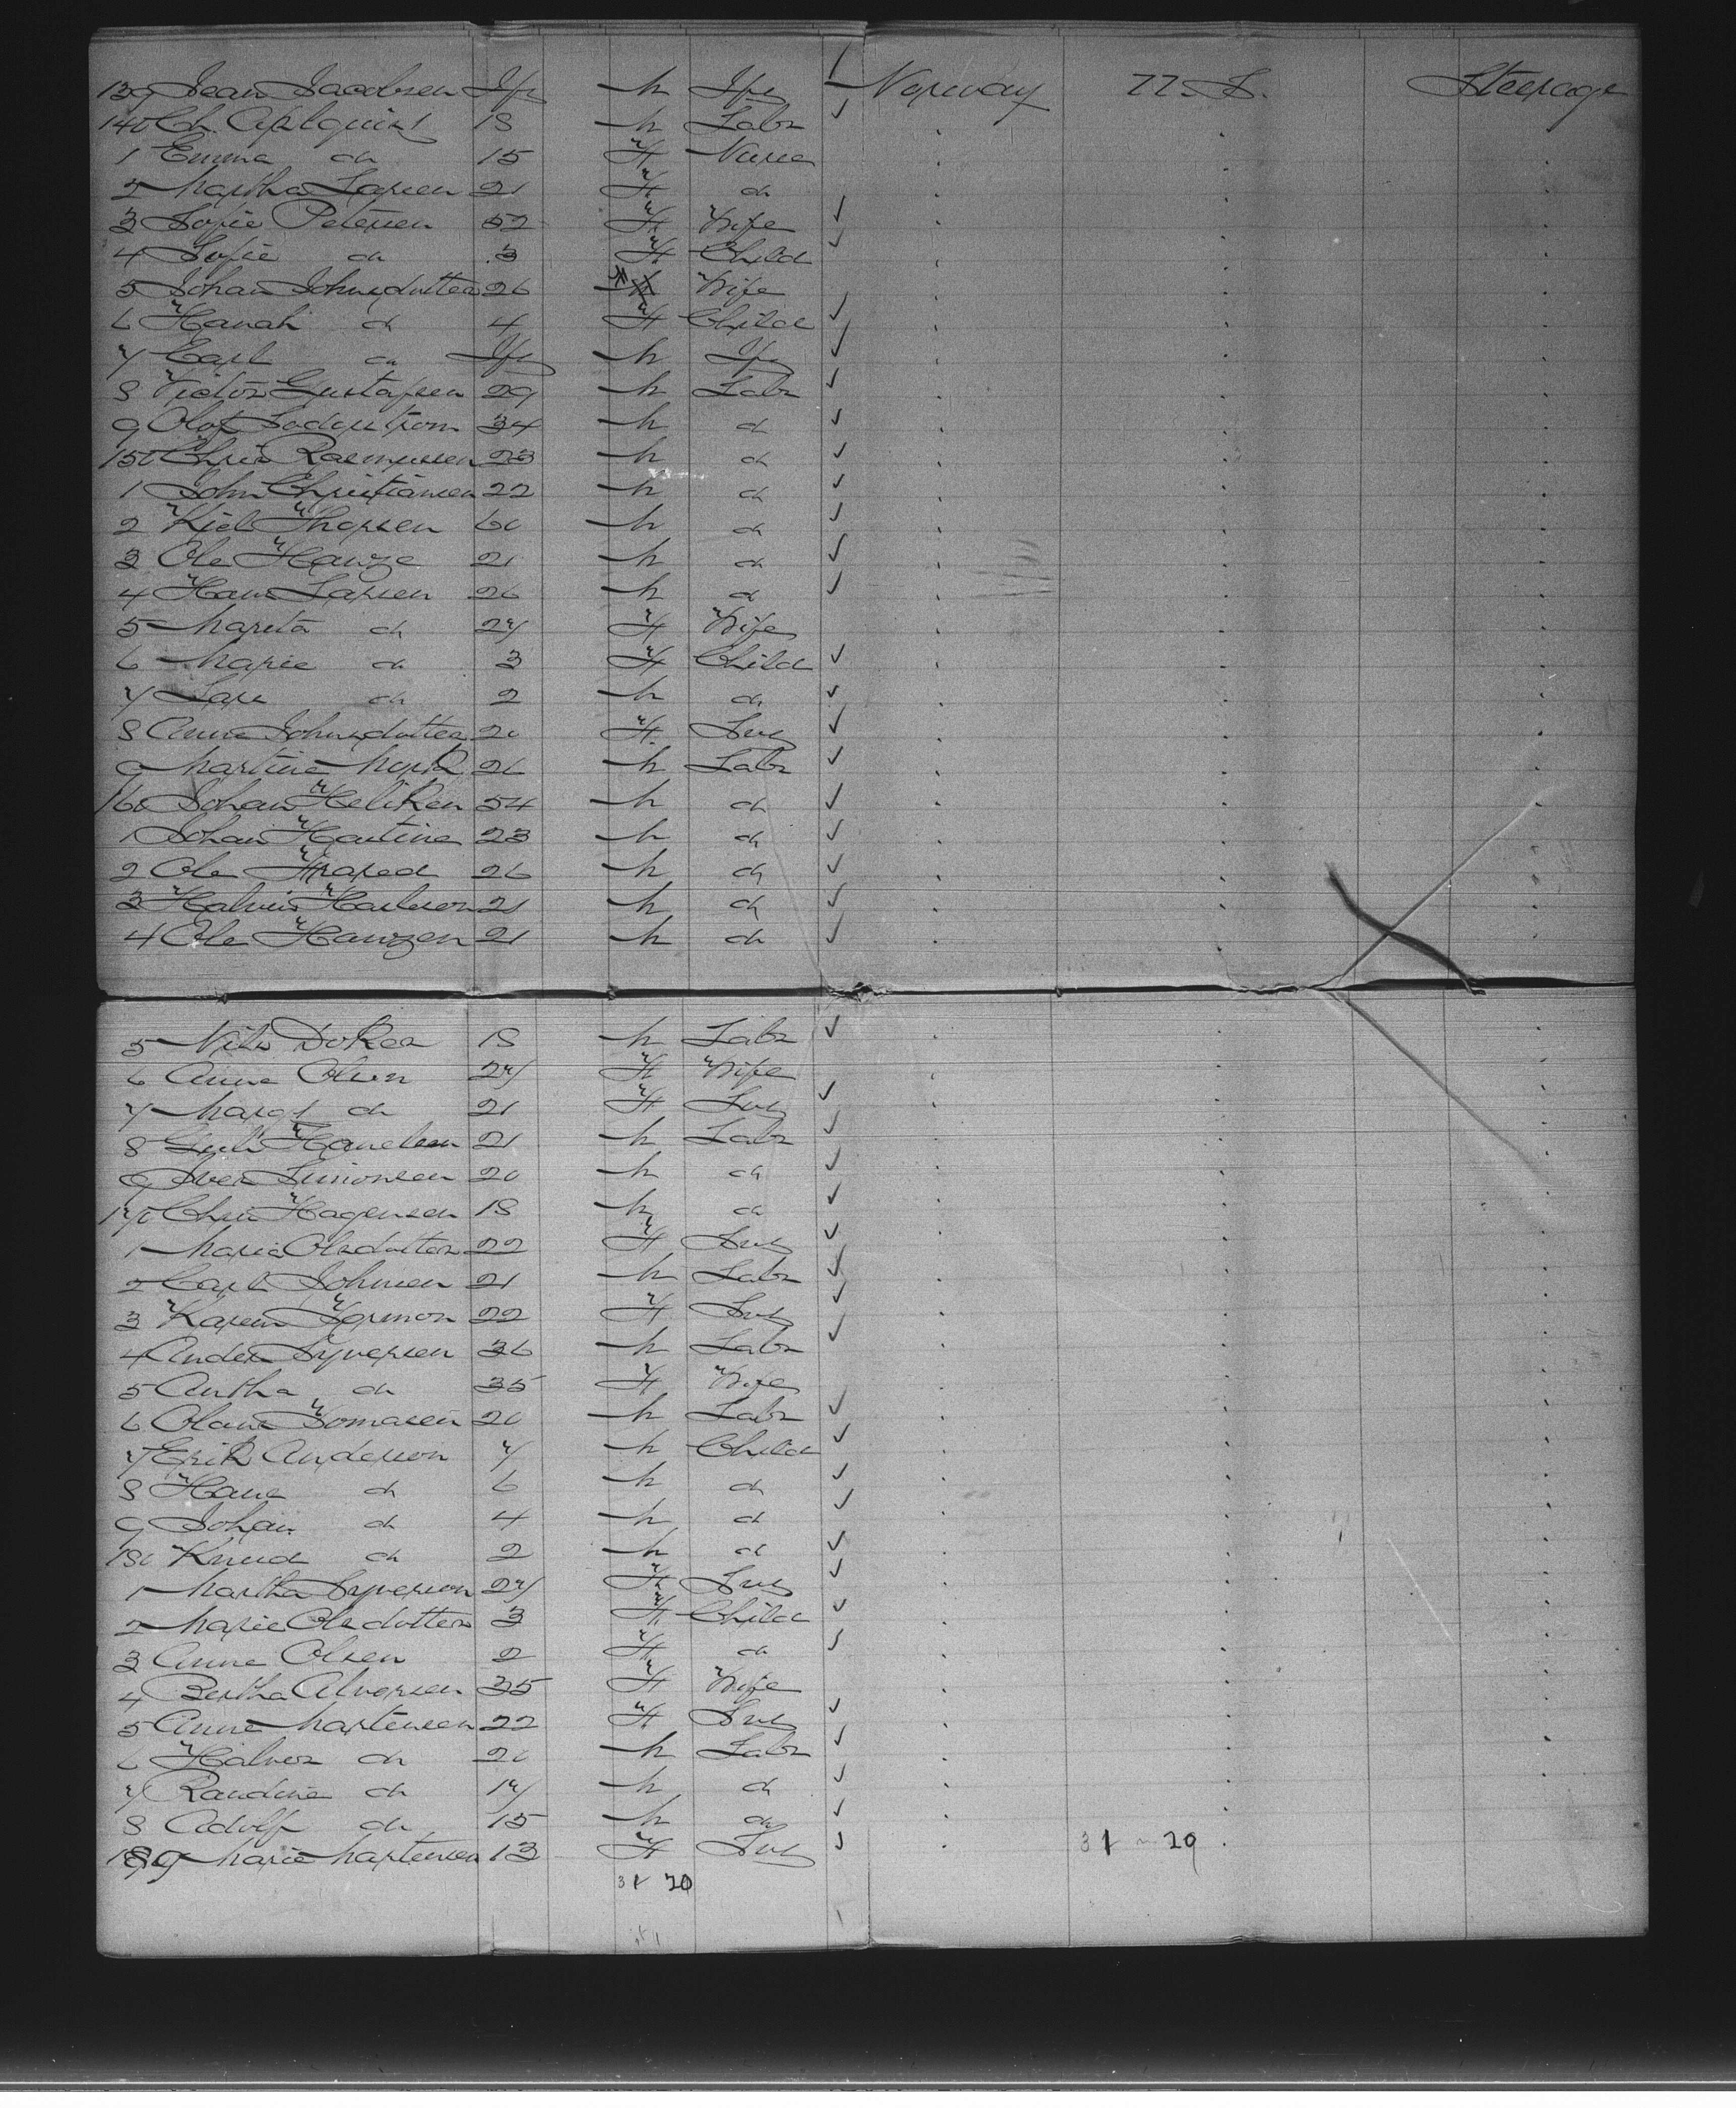 139 Jean Jacobsen Ifr M Ifr Norway U.S. Steerage
140 Ch. Ahlquist 18 M Labr
1 Emma do 15 F Nurse
2 Martha Larsen 21 F do
3 Sofie Petersen 52 F Wife
4 Sofie do 3 F Child
5 Johan Johnsdutter 26 F Wife
6 Hanah do 4 F Child
7 Carl do Ifr M Ifr
8 Victor Gustafsen 29 M Labr
9 Olof Soderstrom 34 M do
150 Chris Rasmussen 23 M do
1 John Christiansen 22 M do
2 Kield Thorsen 60 M do
3 Ole Hauge 21 M do
4 Hans Larsen 26 M do
5 Mareta do 27 F Wife
6 Marie do 3 F Child
7 Lars do 2 M do
8 Anna Johnsdutter 20 F Svt
9 Martine 26 M Labr
160 Johan Heliken 54 M do
1 Johan Hartine 23 M do
2 Ole 26 M do
3 21 M do
4 Ole Hawgen 21 M do
5 Nils Dokea 18 M Labr
6 Anna Olsen 27 F Wife
7 Margt do 21 F Svt
8 21 M Labr
9 Iver Simonsen 20 M do
170 Chris Hagensen 18 M do
1 Marie Olsdutter 22 F Svt
2 Carl Johnsen 21 M Labr
3 Karen 22 F Svt
4 Anders Syversen 36 M Labr
5 Antha do 35 F Wife
6 Olaus Tomasen 20 M Labr
7 Erik Anderson 7 M Child
8 Hans do 6 M do
9 Johan do 4 M do
180 Knud do 2 M do
1 Martha Syverson 27 F Svt
2 Marie Olsdutter 3 F Child
3 Anna Olsen 2 F do
4 Bertha Alversen 35 F Wife
5 Anne Martensen 22 F Svt
6 Halvor do 20 M Labr
7 Randine do 17 M do
8 Adolf do 15 M do
189 Marie Martensen 13 F Svt 31 - 20
31 20